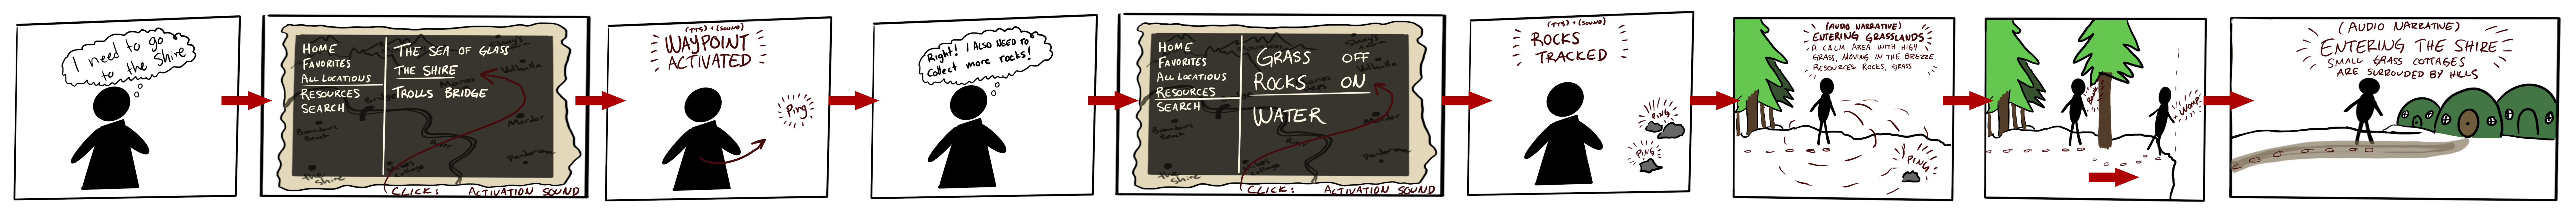 I need to go
to the Shire
HOME
FAVORITES
ALL LOCATIONS
RESOURCES
SEARCH
THE SEA OF GLASS
THE SHIRE
TROLLS BRIDGE
Mordor
the Shire
CLICK: ACTIVATION SOUND
(TTS) + (SOUND)
WAYPOINT
ACTIVATED
Ping
Right! I ALSO NEED TO
collect more rocks!
HOME
FAVORITES
ALL LOCATIONS
RESOURCES
SEARCH
GRASS OFF
ROCKS ON
WATER
Mordor
the Shire
CLICK: ACTIVATION SOUND
(TTS) + (SOUND)
ROCKS
TRACKED
PING
PING
(AUDIO NARRATIVE)
ENTERING GRASSLANDS
A CALM AREA WITH HIGH
GRASS, MOVING IN THE BREZZE.
RESOURCES ROCKS, GRASS
PING
WOMP
(AUDIO NARRATIVE)
ENTERING THE SHIRE
SMALL GRASS COTTAGES
ARE SURROUNDED BY HILLS